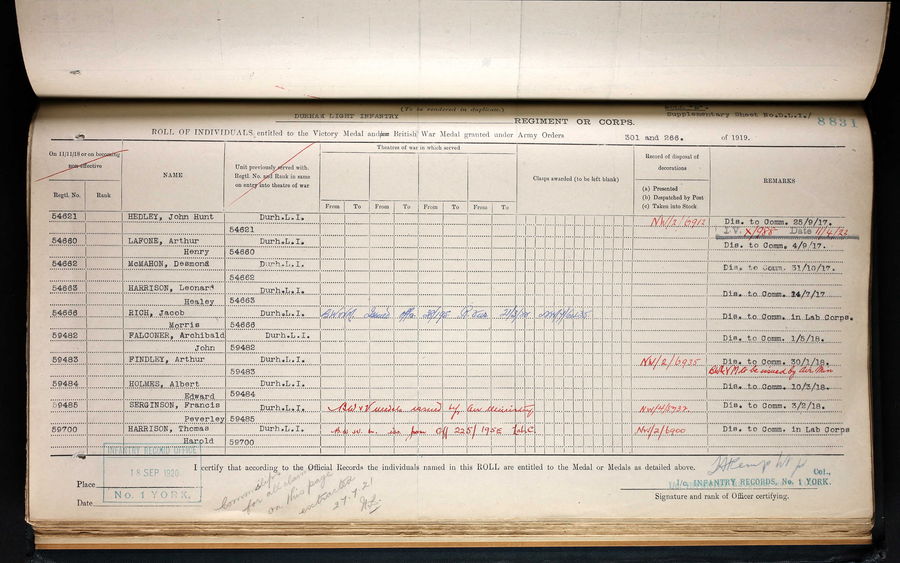 (To be rendered in duplicate.)
DURHAM LIGHT INFANTRY REGIMENT OR CORPS.
Supplementary Sheet No.D.L.I./
8831
ROLL OF INDIVIDUALS entitled to the Victory Medal and British War Medal granted under Army Orders 301 and 266. of 1919.
On 11/11/18 or on becoming non-effective
Regtl. No. Rank
NAME
Unit previously served with. Regtl. No. and Rank in same on entry into theatre of war
Theatres of war in which served
From To From To From To From To
Clasps awarded (to be left blank)
Record of disposal of decorations
(a) Presented
(b) Despatched by Post
(c) Taken into Stock
REMARKS
54621 HEDLEY, John Hunt Durh.L.I. NW/2/6912 Dis. to Comm. 25/9/17.
54621 I.V. X/985 Date 11/4/22
54660 LAFONE, Arthur Durh.L.I. Dis. to Comm. 4/9/17.
Henry 54660
54662 McMAHON, Desmond Durh.L.I. Dis. to Comm. 31/10/17.
54662
54663 HARRISON, Leonard Durh.L.I. Dis. to Comm. 14/7/17
Healey 54663
54666 RICH, Jacob Durh.L.I. Issued Dis. to Comm. in Lab Corps.
Morris 54666
59482 FALCONER, Archibald Durh.L.I. Dis. to Comm. 1/5/18.
John 59482
59483 FINDLEY, Arthur Durh.L.I. NW/2/6935 Dis. to Comm. 30/1/18.
59483 BW&VM to be issued by Air Min
59484 HOLMES, Albert Durh.L.I. Dis. to Comm. 10/3/18.
Edward 59484
59485 SERGINSON, Francis Durh.L.I. BW & V medals issued by Air Ministry Dis. to Comm. 3/2/18.
Peverley 59485
59700 HARRISON, Thomas Durh.L.I. NW/2/6900 Dis. to Comm. in Lab Corps
Harold 59700
INFANTRY RECORD OFFICE
18 SEP 1920
No. 1 YORK.
I certify that according to the Official Records the individuals named in this ROLL are entitled to the Medal or Medals as detailed above.
Place
Date
on this page
extracted
27.7.21
Col.,
I/c. INFANTRY RECORDS, No. 1 YORK.
Signature and rank of Officer certifying.